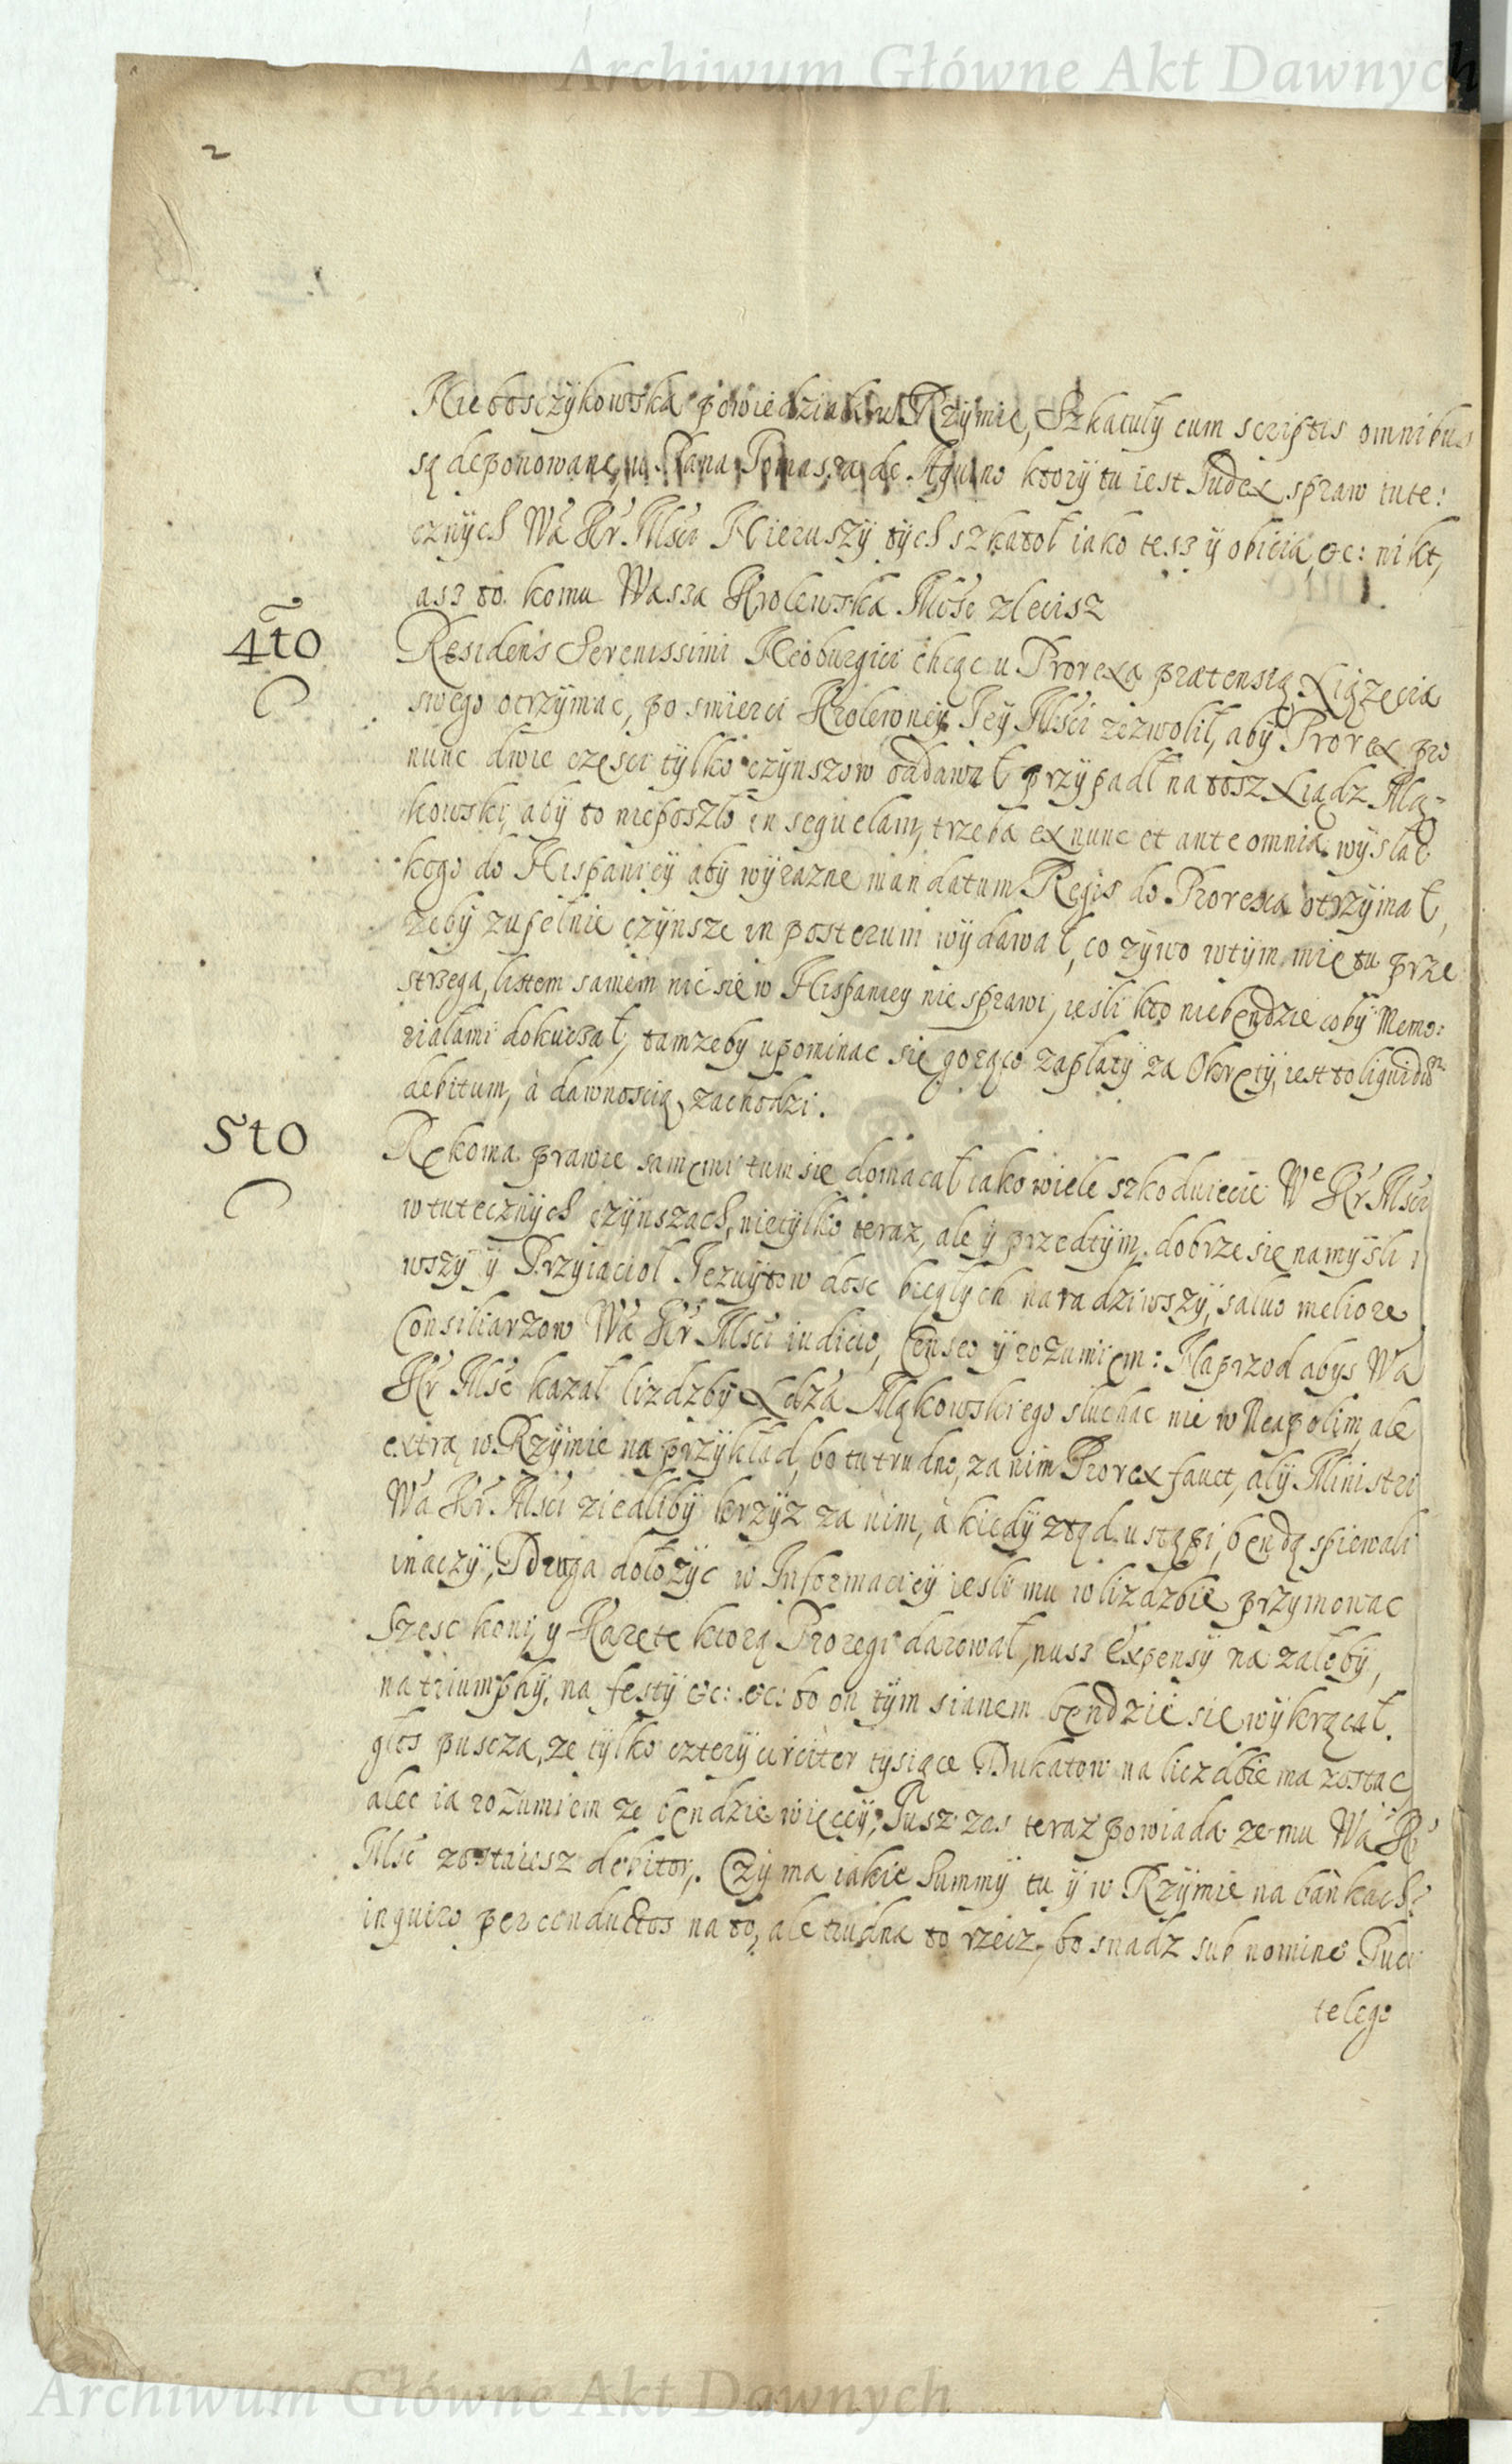 Archiwum Główne Akt Dawnych
2
Nieboszczykowska powiedział w Rzymie, Szkatuły cum scriptis omnibus
są deponowane, u Pana Tomasza de Aquino ktorÿ tu iest Judex spraw tute:
cznÿch Wa Kr. Msci Nieruszÿ tÿch szkatoł iako tesz ÿ obicia, &c: nikt,
asz to komu Wasza Krolewska Mośc zlecisz
4to
Residens Serenissimi Neoburgici chcąc u Prorexa prætensią Xiążęcia
swego otrzÿmac, po smierci Krolewneÿ Jeÿ Msci zezwolił, abÿ Prorex pro
nunc dwie częsci tÿlko czÿnszow oddawał przÿpadł na tosz Xiądz Mą-
kowski, abÿ to nieposzło in sequelam, trzeba ex nunc et ante omnia wÿsłac
kogo do Hispanieÿ abÿ wÿrazne mandatum Regis do Prorexa otrzÿmał,
zebÿ zupełnie czÿnsze in posterum wÿdawał, co zÿwo wtÿm mię tu prze
strzega, listem samem nic się w Hispanieÿ nie sprawi, iesli kto niebendzie cobÿ Memo:
riałami dokuczał, tamzeby upominac się gorąco zapłatÿ za Okrętÿ, iest to liquidum
debitum, à dawnoscią zachodzi.
5to
Rękoma prawie samemi tum się domacał iako wiele szkoduiecie We Kr. Msci
w tutecznÿch czÿnszach, nietÿlko teraz, ale ÿ przedtÿm, dobrze się namÿśli
wszÿ ÿ Przÿiacioł Jezuÿtow dosc biegłÿch naradziwszÿ, saluo meliore
Consiliarzow Wa Kr Msci iudicio, Censeo ÿ rozumiem: Naprzod abÿs Wa
Kr Msc kazał lizdzbÿ Xdza Mąkowskiego słuchac nie w Neapolim, ale
extra, w Rzÿmie na przÿkład, bo tu trudno, za nim Prorex fauet, alÿ Ministri
Wa Kr. Msci ziedlibÿ krzÿz za nim, à kiedÿ ztąd ustąpi, bendą spiewali
inaczÿ, Druga dołozÿc w Informacieÿ iesli mu w lizdzbie przÿmowac
szesc koni, y Karete ktorą Proregi darował, nusz Expensÿ na załobÿ,
na triumphÿ, na festÿ &c: &c: bo on tÿm sianem bendzie się wÿkrącał.
głos puscza, ze tÿlko czterÿ circiter tÿsiące Dukatow na liczdbie ma zostac,
alec ia rozumiem ze bendzie więceÿ, Jusz zas teraz powiada ze mu Wa Kr
Msc zostaiesz debitor,. Czÿ ma iakie Summÿ tu ÿ w Rzÿmie na bankach?
inquiro per conductos na to, ale trudna to rzecz, bo snadz sub nomine Puci
telego
Archiwum Główne Akt Dawnych